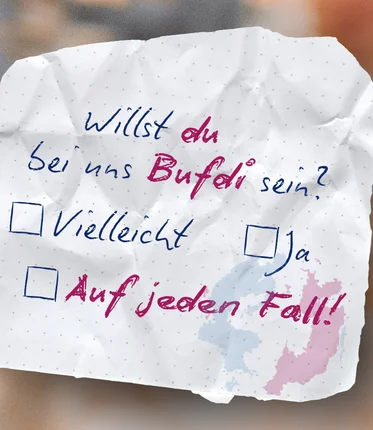 Willst du
bei uns Bufdi sein?
Vielleicht Ja
Auf jeden Fall!